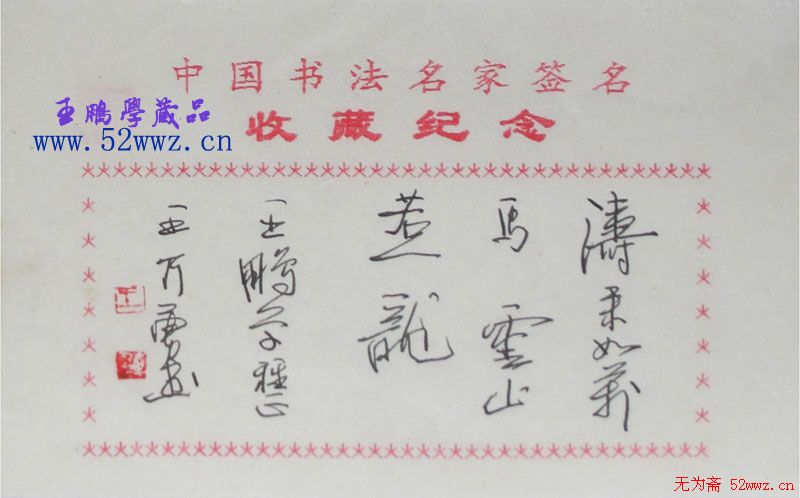 中国书法名家签名
王鵬學藏品
收藏纪念
www.52wwz.cn
濤来如萬
馬 山
若 龍
王鵬学雅正
王
无为斋 52wwz.cn